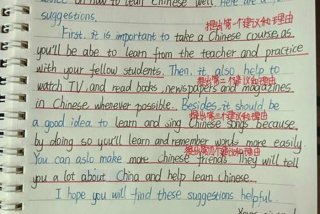 on how to learn Chinese well. Here are a
suggestions.
提出第一个建议和理由
First, it is important to take a Chinese course as
you'll be abe to learn from the teacher and practice
with your fellow students. Then, it also help to
提出第二个建议
watch TV, and read books, newspapers and magazines
in Chinese whenever possible. Besides, it should be
提出第三个建议和理由
a good idea to learn and sing Chinese songs because
by doing so you'll learn and remember words more easily.
You can aslo make more Chinese friends. They will tell
you a lot about China and help learn Chinese.
I hope you will find these suggestions helpful.